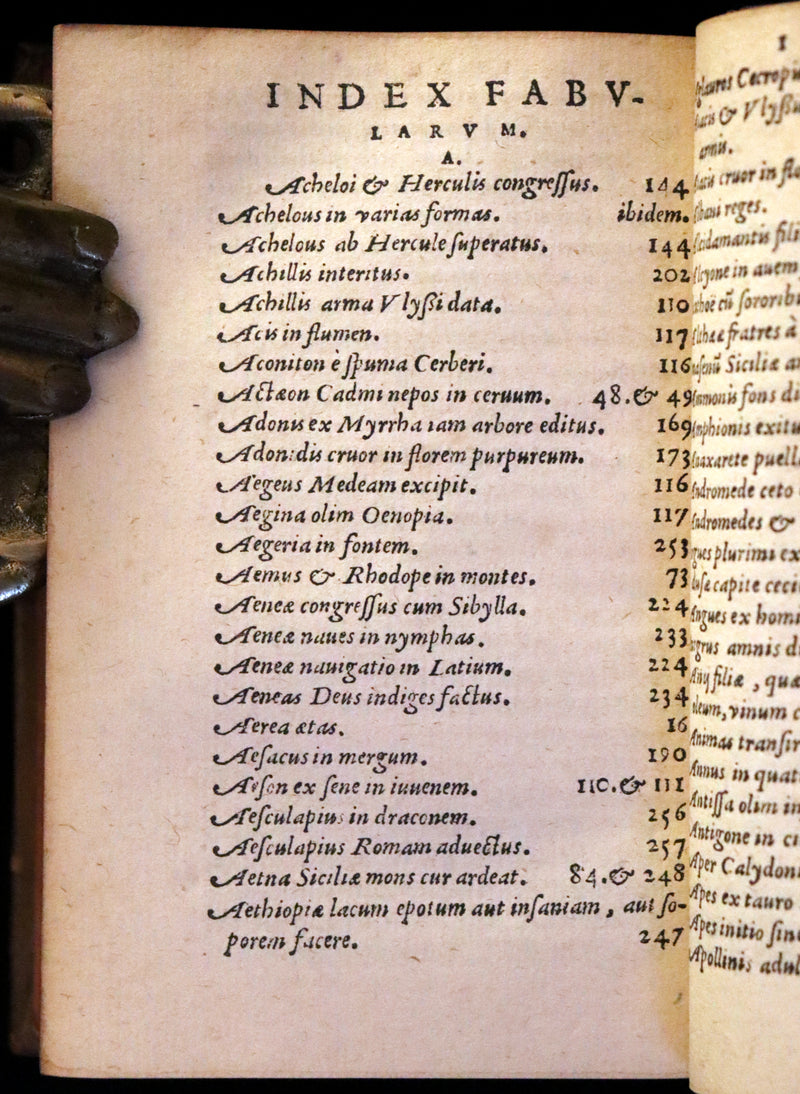 INDEX FABV-
LARVM.
A.
Acheloi & Herculis congreſſus. 144
Achelous in varias formas. ibidem.
Achelous ab Hercule ſuperatus. 144
Achillis interitus. 202
Achillis arma Vlyſſi data. 110
Acis in flumen. 117
Aconiton è ſpuma Cerberi. 116
Actæon Cadmi nepos in ceruum. 48.& 49
Adonis ex Myrrha iam arbore editus. 169
Adonidis cruor in florem purpureum. 173
Aegeus Medeam excipit. 116
Aegina olim Oenopia. 117
Aegeria in fontem. 253
Aemus & Rhodope in montes. 73
Aeneæ congreſſus cum Sibylla. 224
Aeneæ naues in nymphas. 233
Aeneæ nauigatio in Latium. 224
Aeneas Deus indiges factus. 234
Aerea ætas. 16
Aeſacus in mergum. 190
Aeſon ex ſene in iuuenem. 110.& 111
Aeſculapius in draconem. 256
Aeſculapius Romam aduectus. 257
Aetna Siciliæ mons cur ardeat. 84.& 248
Aethiopiæ lacum epotum aut inſaniam, aut ſo-
porem facere. 247
I
Cecrop
& Vlyſſ
cruor in fl
reges.
in auem
cũ ſororib
fratres à
Siciliæ
fons di
exitu
puell
ceto
&
plurimi ex
capite
Angues ex homi
amnis d
filiæ, quæ
vinum
Animas tranſir
Annus in quat
Antiſſa olim in
Antigone in ci
Aper Calydoni
Apes ex tauro
Apes initio ſin
Apollinis adul